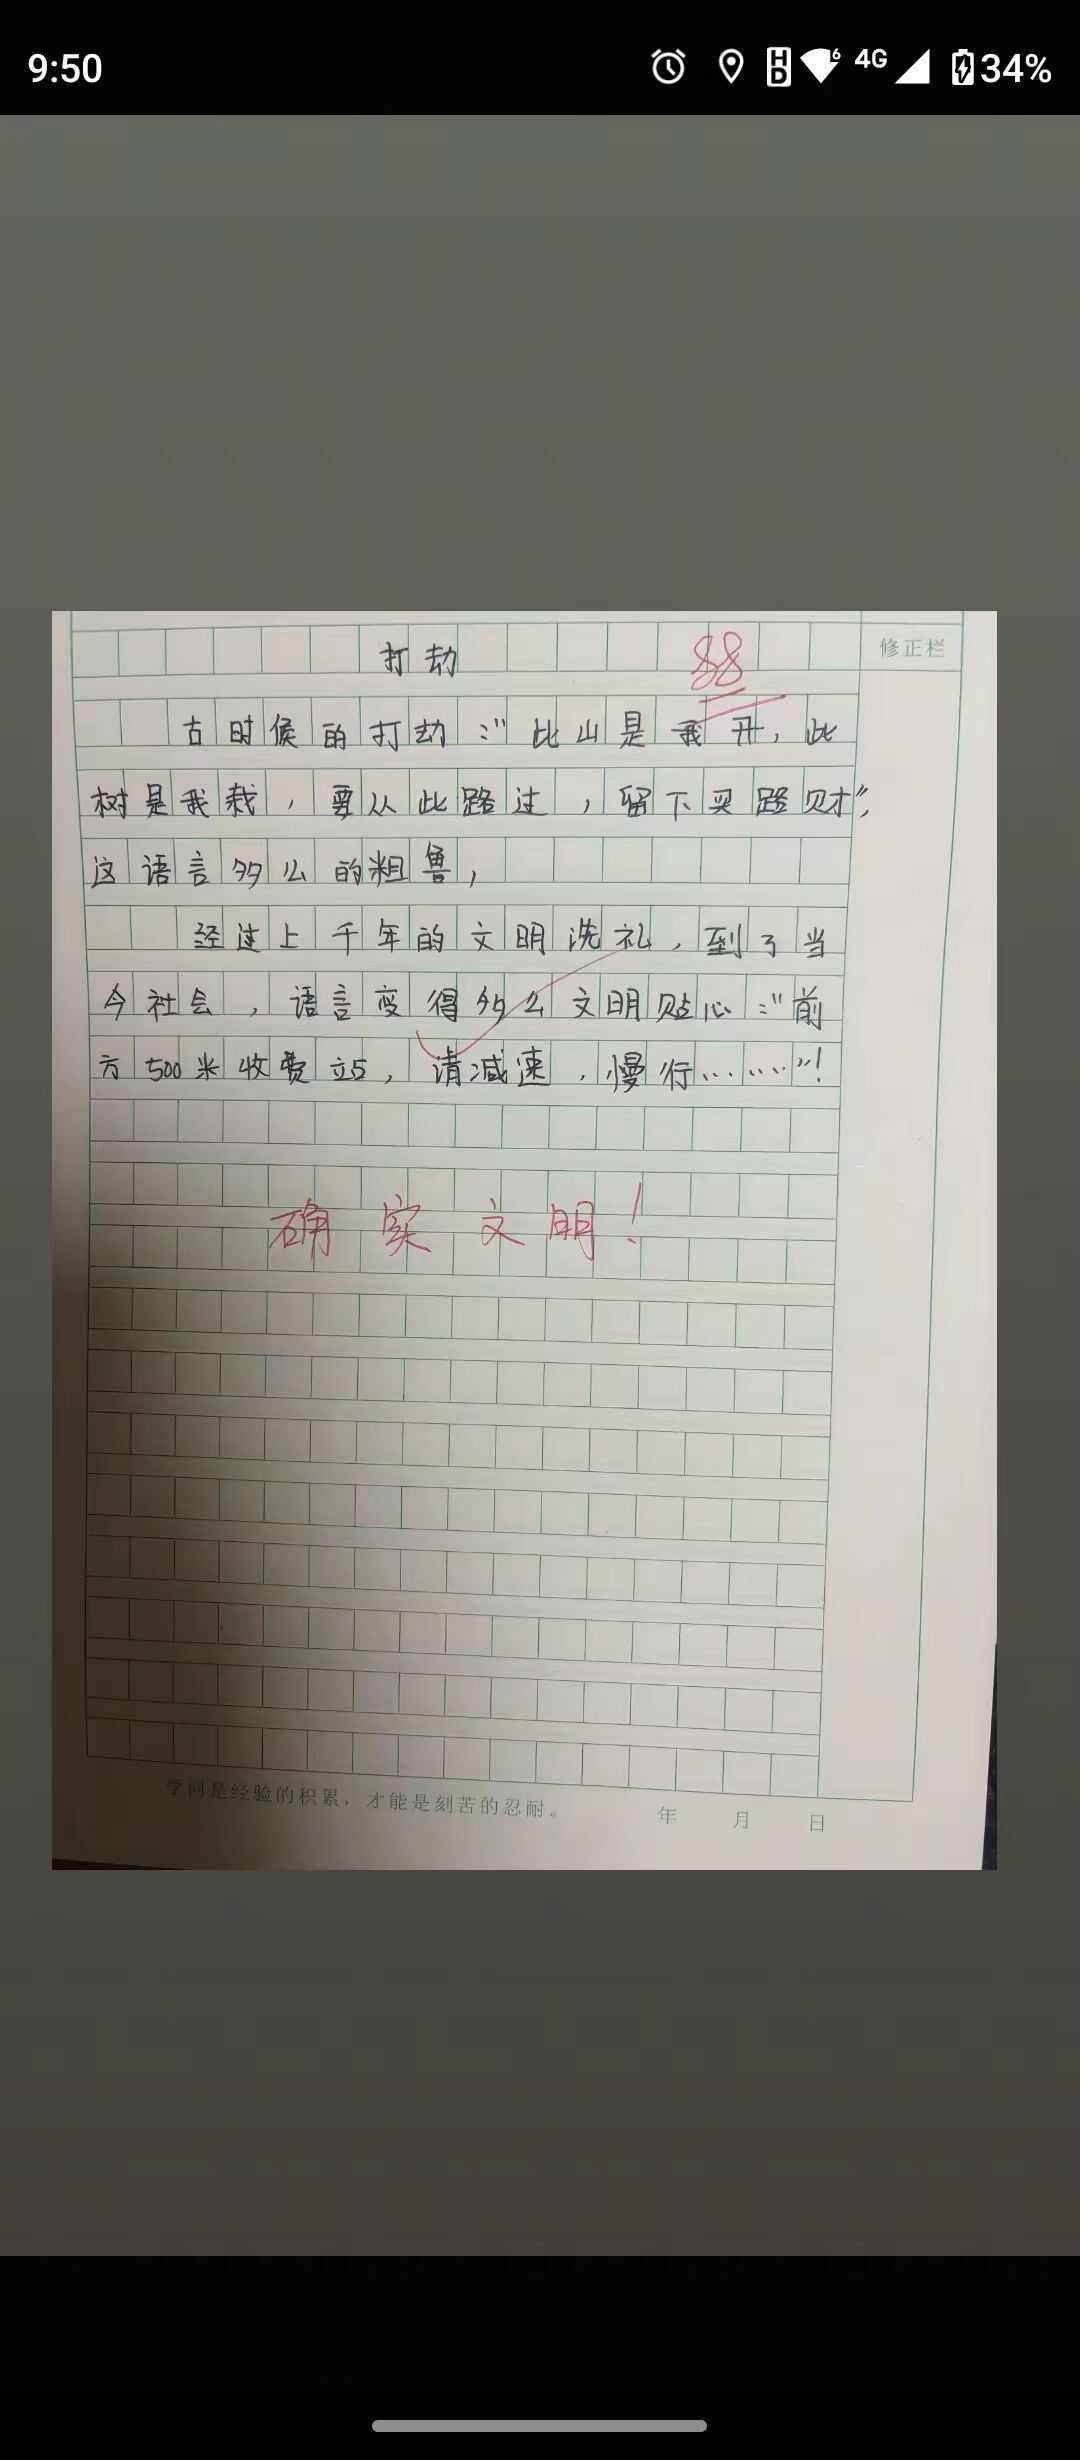 9:50 HD 6 4G 34%
打劫 88 修正栏
古时候的打劫:“此山是我开，此
树是我栽，要从此路过，留下买路财”，
这语言多么的粗鲁，
经过上千年的文明洗礼，到了当
今社会，语言变得多么文明贴心:“前
方500米收费站，请减速，慢行……”！
确实文明！
学问是经验的积累，才能是刻苦的忍耐。 年 月 日